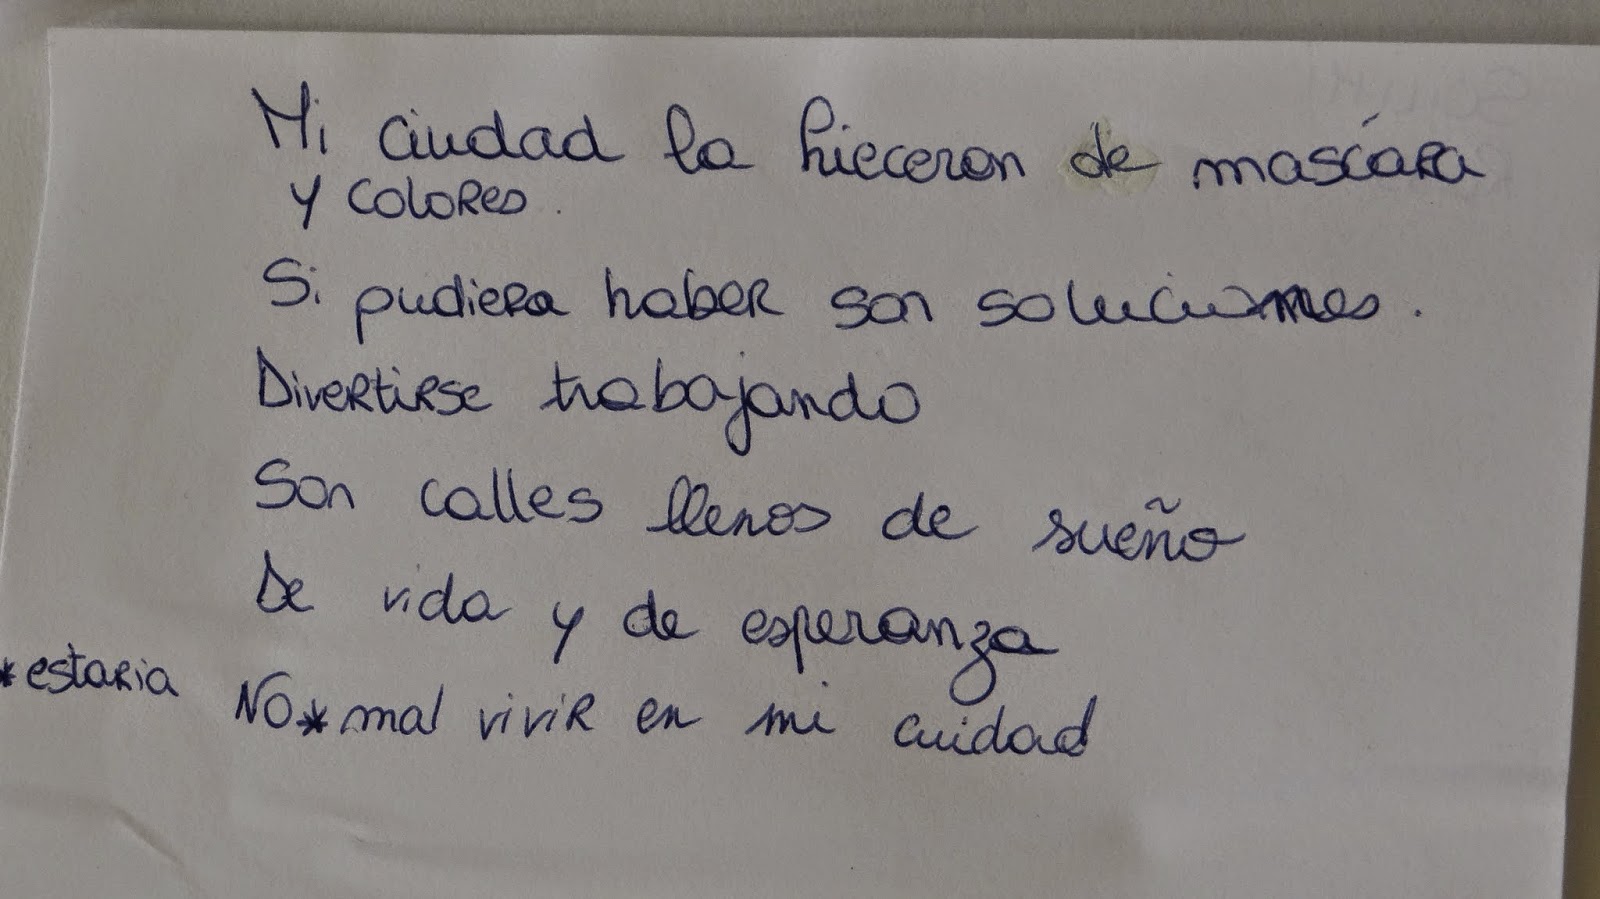 Mi ciudad la hieceron de mascára
y colores.
Si pudiera haber son soluciones.
Divertirse trabajando
Son calles llenos de sueño
De vida y de esperanza
*estaria
NO* mal vivir en mi cuidad